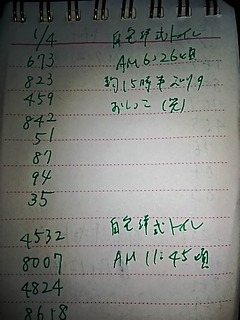 1/4 自宅洋式トイレ
673 AM 6:26頃
823 約15時半
459 おしっこ
842
51
87
94
35
4532 自宅洋式トイレ
8007 AM 11:45頃
4824
8618